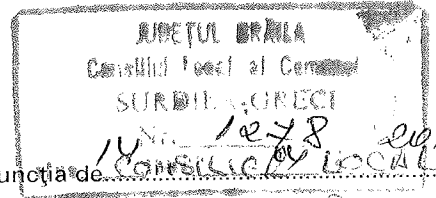 JUDEŢUL BRĂILA
Consiliul Local al Comunei
SURDILA-GRECI
Nr. 1278
uncţia de CONSILIER LOCAL